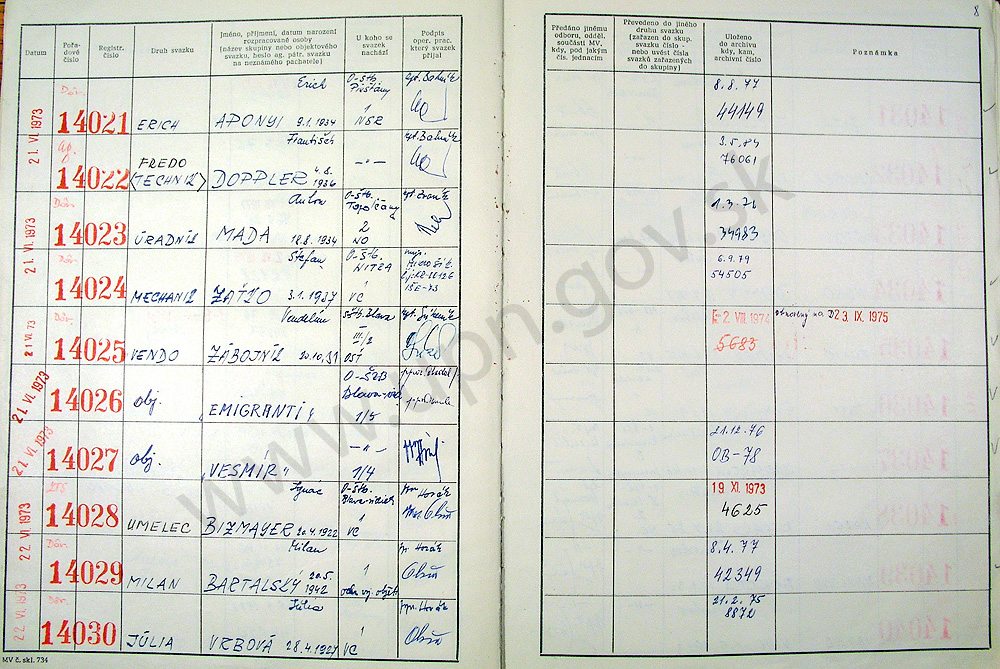 8
Datum
Pořa-
dové
číslo
Registr.
číslo
Druh svazku
Jméno, příjmení, datum narození
rozpracované osoby
(název skupiny nebo objektového
svazku, heslo ag. pátr. svazku
na neznámého pachatele)
U koho se
svazek
nachází
Podpis
oper. prac.
který svazek
přijal
Předáno jinému
odboru, odděl.
součásti MV,
kdy, pod jakým
čís. jednacím
Převedeno do jiného
druhu svazku
(zařazen do skup.
svazku číslo -
nebo uvést čísla
svazků zařazených
do skupiny)
Uloženo
do archivu
kdy, kam,
archivní číslo
Poznámka
21 VI. 1973
Dův.
14021
ERICH
Erich
APONYI 9.1.1934
O-Štb.
Piešťany
1
NSR
8.8.77
44149
Ag.
14022
FREDO
(TECHNIK)
František
DOPPLER 4.8.
1936
-"-
3.5.84
76061
21. VI. 1973
Dův.
14023
ÚRADNÍK
Anton
MADA 18.8.1934
O-Štb.
Topoľčany
2
NO
1.3.76
34983
Dův.
14024
MECHANIK
Štefan
ZAŤKO 3.1.1937
O-Štb.
NITRA
1
VC
6.9.79
54505
21 VI. 73
Dův.
14025
VENDO
Vendelín
ZÁBOJNÍK 20.10.31
III/2
OSŤ
2 VIII. 1974
5683
obnovený na D 23. IX. 1975
21 VI. 1973
14026
obj.
„EMIGRANTI"
O-ŠtB
1/5
22 VI. 1973
14027
obj.
„VESMÍR"
-"-
1/4
21.12.76
OB-78
22 VI. 1973
14028
UMELEC
Ignac
BIZMAYER 20.4.1922
O-Štb.
1
VC
Horák
19 XI. 1973
4625
Dův.
14029
MILAN
Milan
BARTALSKÝ 20.5.
1942
1
Horák
8.4.77
42349
22 VI. 1973
Dův.
14030
JÚLIA
Júlia
VRBOVÁ 28.4.1927
1
VC
Horák
21.2.75
8872
MV č. skl. 734
www.upn.gov.sk